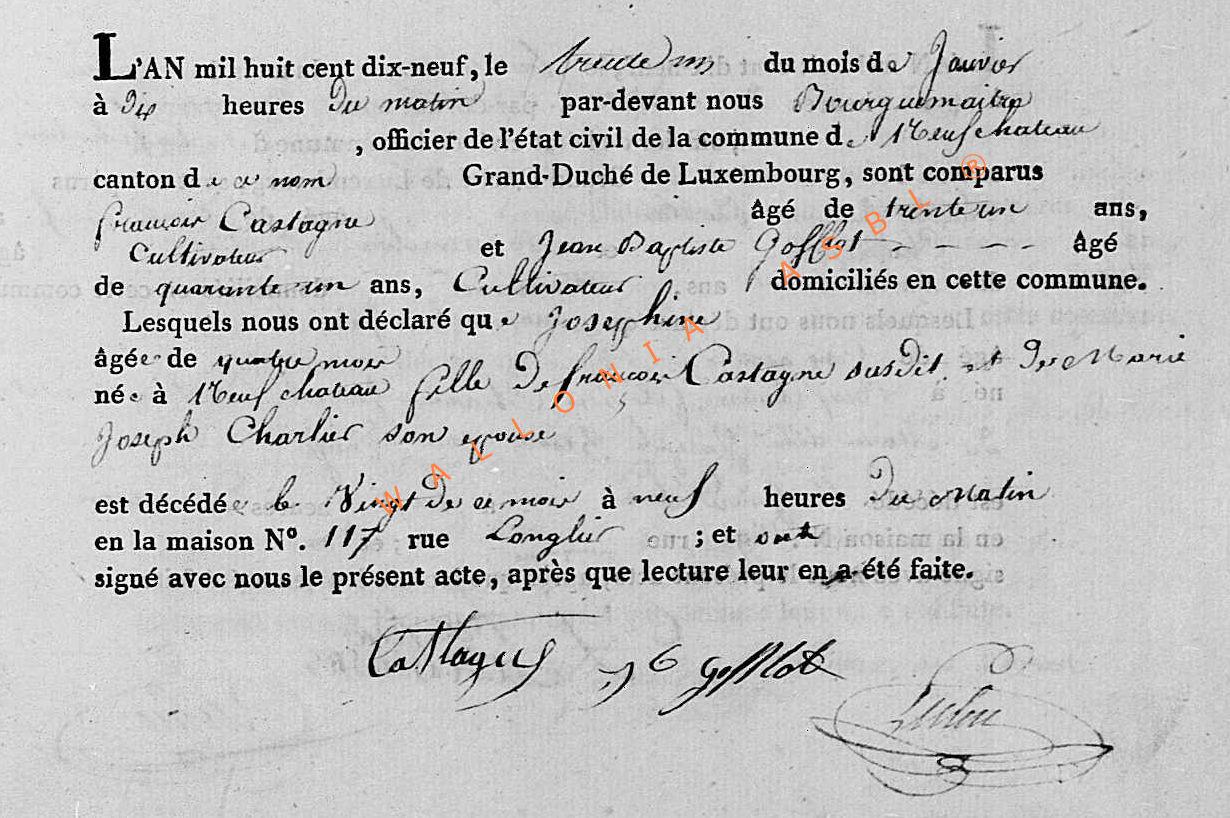 L'AN mil huit cent dix-neuf, le trente un du mois de Janvier
à Dix heures Du matin par-devant nous Bourguemaitre
, officier de l'état civil de la commune de Neufchateau
canton de ce nom Grand-Duché de Luxembourg, sont comparus
francois Castagne âgé de trente un ans,
Cultivateur et Jean Baptiste Gofflot - - - - âgé
de quarante un ans, Cultivateur domiciliés en cette commune.
Lesquels nous ont déclaré que Josephine
âgée de quatre mois
née à Neufchateau fille De francois Castagne susdit et De Marie
Joseph Charlier son epouse
est décédée le Vingt De ce mois à neuf heures Du Matin
en la maison N°. 117 rue Longlier ; et ont
signé avec nous le présent acte, après que lecture leur en a été faite.
Castagne J B Gofflot
WALLONIA ASBL ®